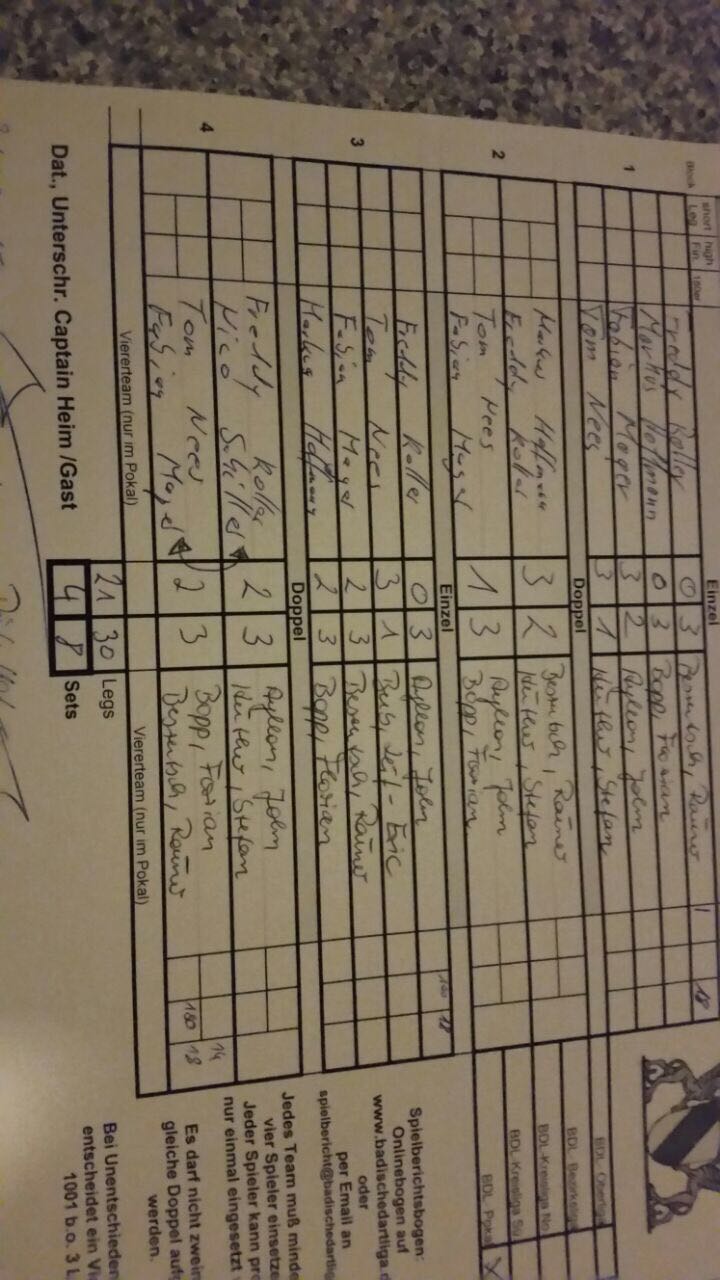 Block short Leg high Fin. 180er
Einzel
1
Freddy Koller 0 3 Desentsch, Rainer 1 18
Markus Hoffmann 0 3 Bopp, Florian
Fabian Mager 3 2 Ayllon, John
Tom Nees 3 1 Küther, Stefan
Doppel
2
Markus Hoffmann
Freddy Koller 3 2
Rainer
Küther, Stefan
Tom Nees
Fabian Mager 1 3
Ayllon, John
Bopp, Florian
Einzel
3
Freddy Koller 0 3 Ayllon, John 100 18
Tom Nees 3 1 Eric
Fabian Mager 2 3 Rainer
Markus Hoffmann 2 3 Bopp, Florian
Doppel
4
Freddy Koller
Nico Schiller 2 3
Ayllon, John
Küther, Stefan
Tom Nees
Fabian Mager 2 3
Bopp, Florian
Rainer
14
180 18
Viererteam (nur im Pokal) Viererteam (nur im Pokal)
21 30 Legs
4 8 Sets
Dat., Unterschr. Captain Heim /Gast
BDL Oberliga
BDL Bezirksliga
BDL-Kreisliga No
BDL-Kreisliga Sü
BDL Pokal X
Spielberichtsbogen:
Onlinebogen auf
www.badischedartliga.d
oder
per Email an
spielbericht@badischedartlig
Jedes Team muß minde
vier Spieler einsetze
Jeder Spieler kann pro
nur einmal eingesetzt
Es darf nicht zweim
gleiche Doppel aufg
werden.
Bei Unentschieden
entscheidet ein Vi
1001 b.o. 3 L